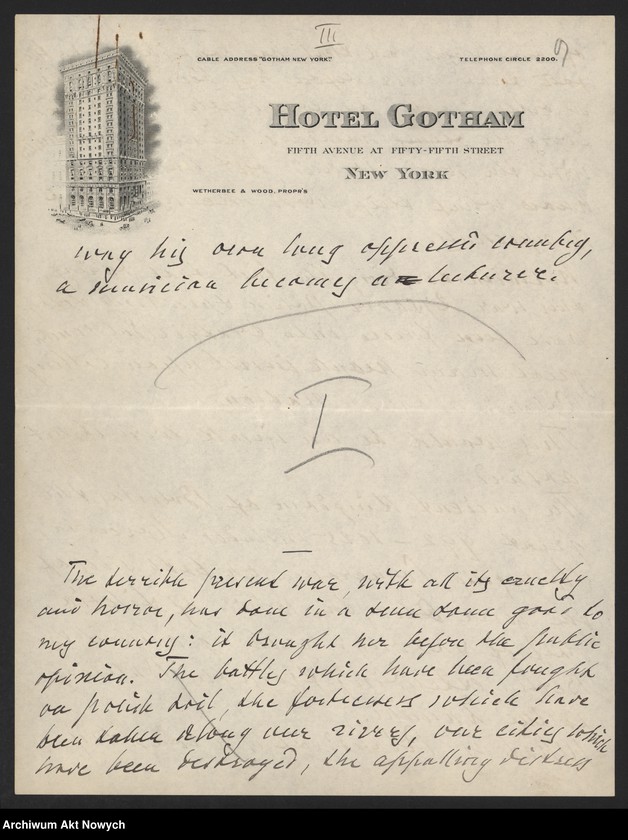 III
9
CABLE ADDRESS "GOTHAM NEW YORK."
TELEPHONE CIRCLE 2200.
HOTEL GOTHAM
FIFTH AVENUE AT FIFTY-FIFTH STREET
NEW YORK
WETHERBEE & WOOD, PROPR'S
way his own long oppressed country,
a musician becomes a lecturer.
I
The terrible present war, with all its cruelty
and horror, has done in a sense some good to
my country: it brought her before the public
opinion. The battles which have been fought
on polish soil, the fortresses which have
been taken along our rivers, our cities which
have been destroyed, the appalling distress
Archiwum Akt Nowych